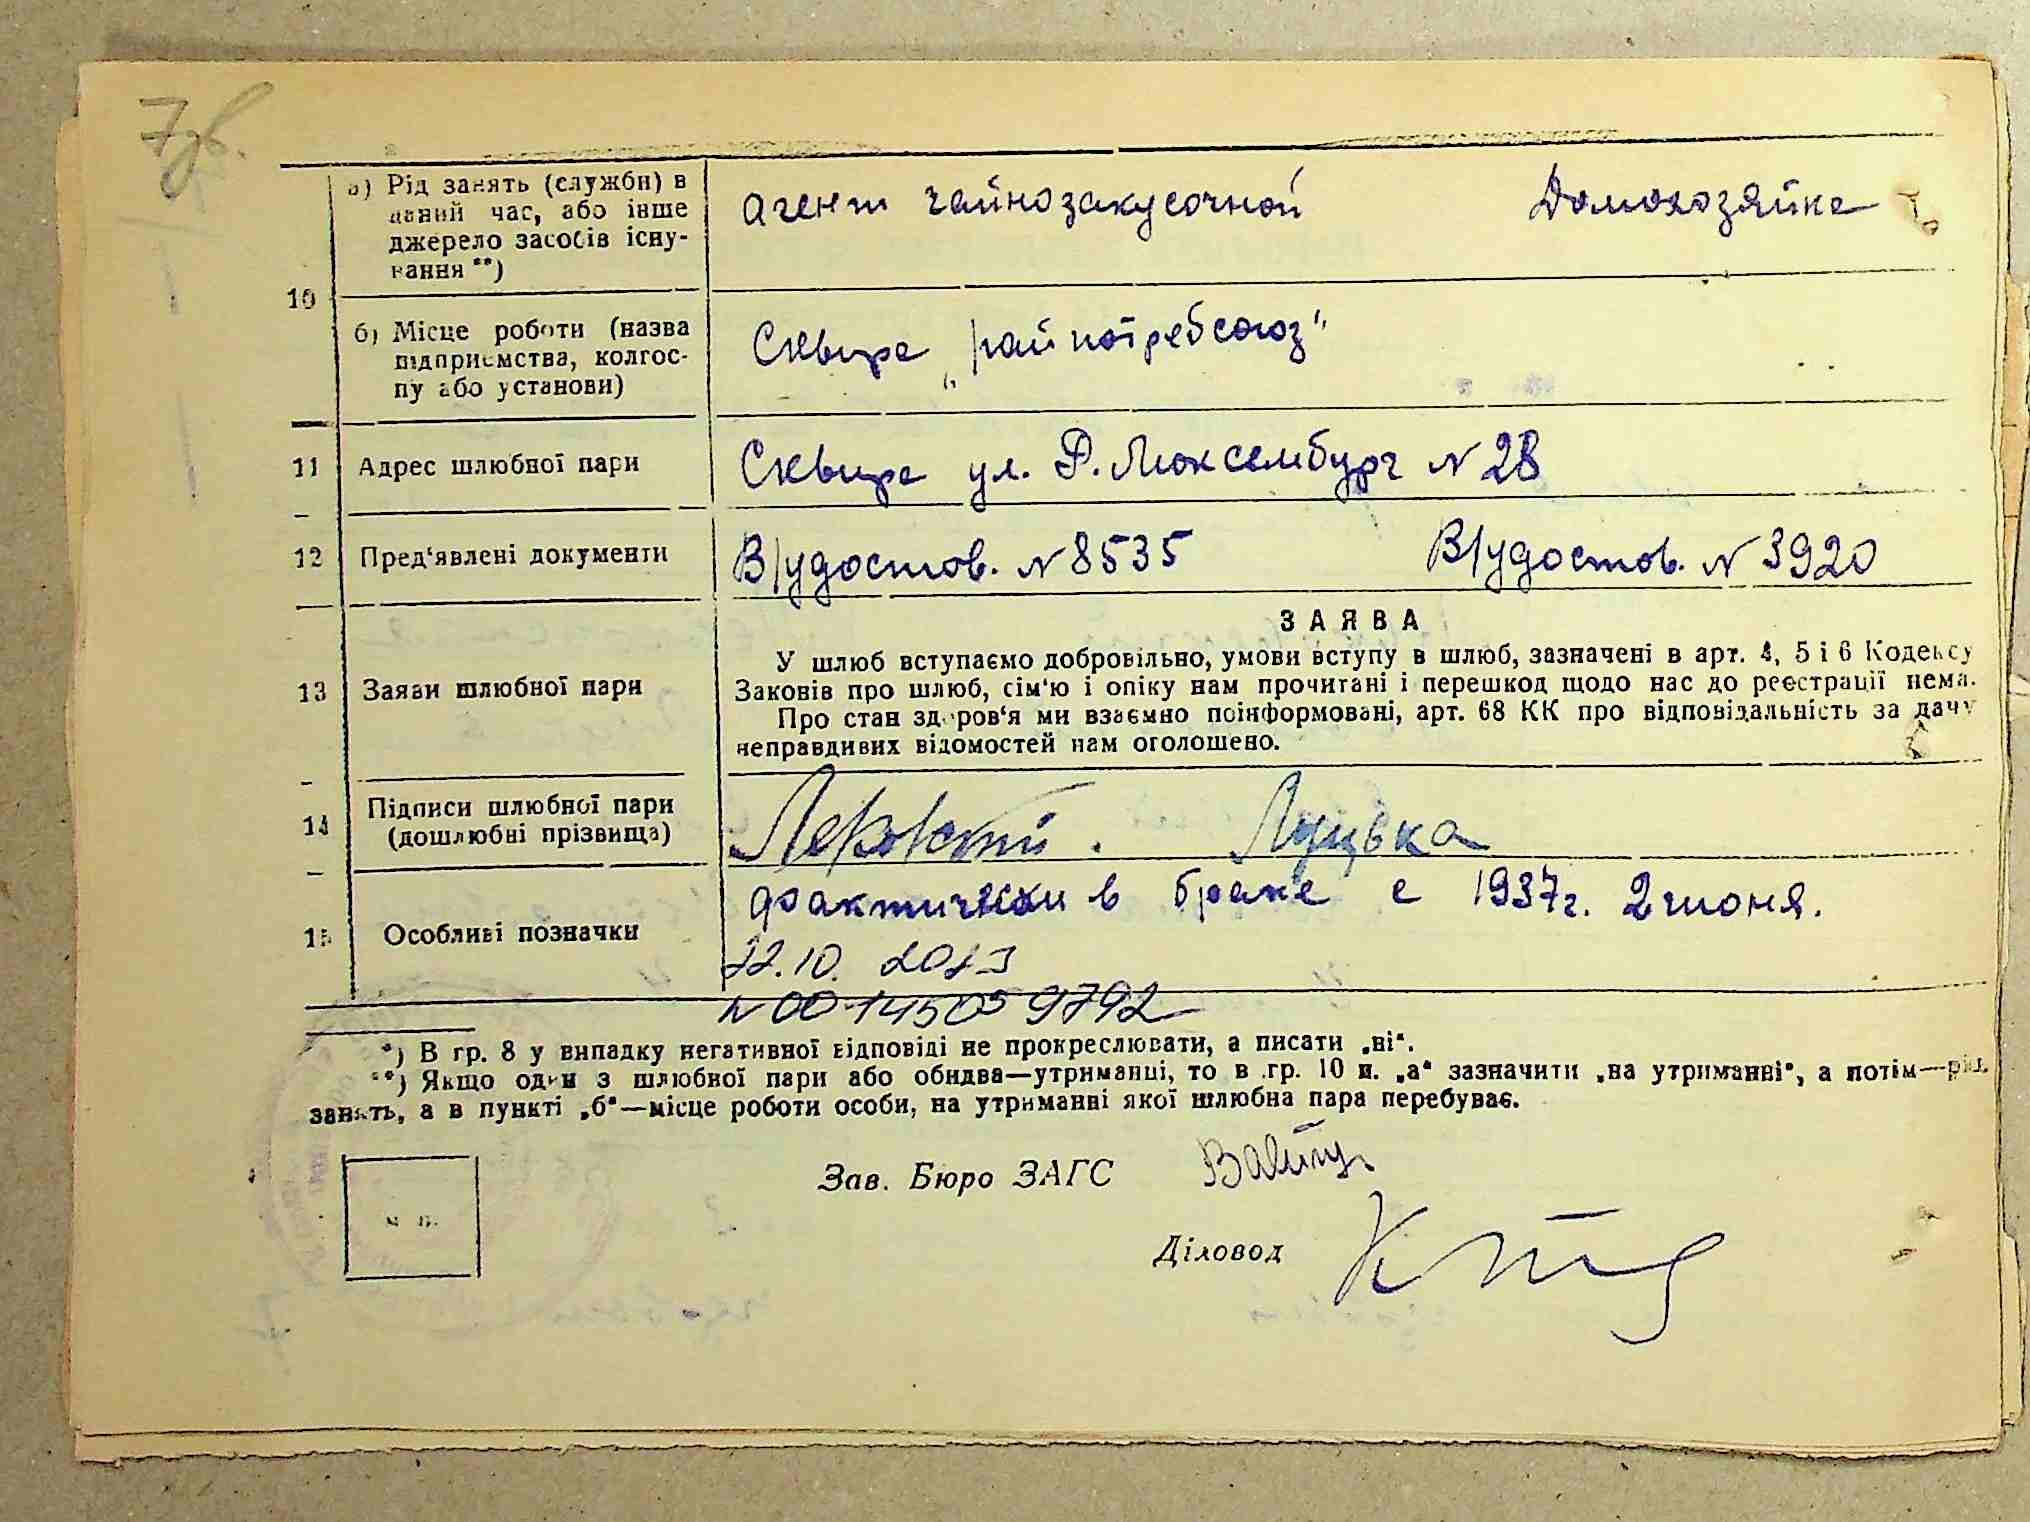 7
а) Рід занять (служби) в
даний час, або інше
джерело засобів існу-
вання **)
агент чайнозакусочной Домохозяйка
10
б) Місце роботи (назва
підприємства, колгос-
пу або установи)
Сквира „райпотребсоюз"
11 Адрес шлюбної пари Сквира ул. Р. Люксембург N 28
12 Пред'явлені документи В/удостов. N 8535 В/удостов. N 3920
ЗАЯВА
13 Заяви шлюбної пари
У шлюб вступаємо добровільно, умови вступу в шлюб, зазначені в арт. 4, 5 і 6 Кодексу
Законів про шлюб, сім'ю і опіку нам прочитані і перешкод щодо нас до реєстрації нема.
Про стан здоров'я ми взаємно поінформовані, арт. 68 КК про відповідальність за дачу
неправдивих відомостей нам оголошено.
14 Підписи шлюбної пари
(дошлюбні прізвища)
Луцька
15 Особливі позначки
фактически в браке с 1937 г. 2 июня.
22.10. 2013
N 00014505 9792
*) В гр. 8 у випадку негативної відповіді не прокреслювати, а писати „ні".
**) Якщо один з шлюбної пари або обидва—утриманці, то в гр. 10 п. „а" зазначити „на утриманні", а потім—рід
занять, а в пункті „б"—місце роботи особи, на утриманні якої шлюбна пара перебуває.
Зав. Бюро ЗАГС
м. п.
Діловод